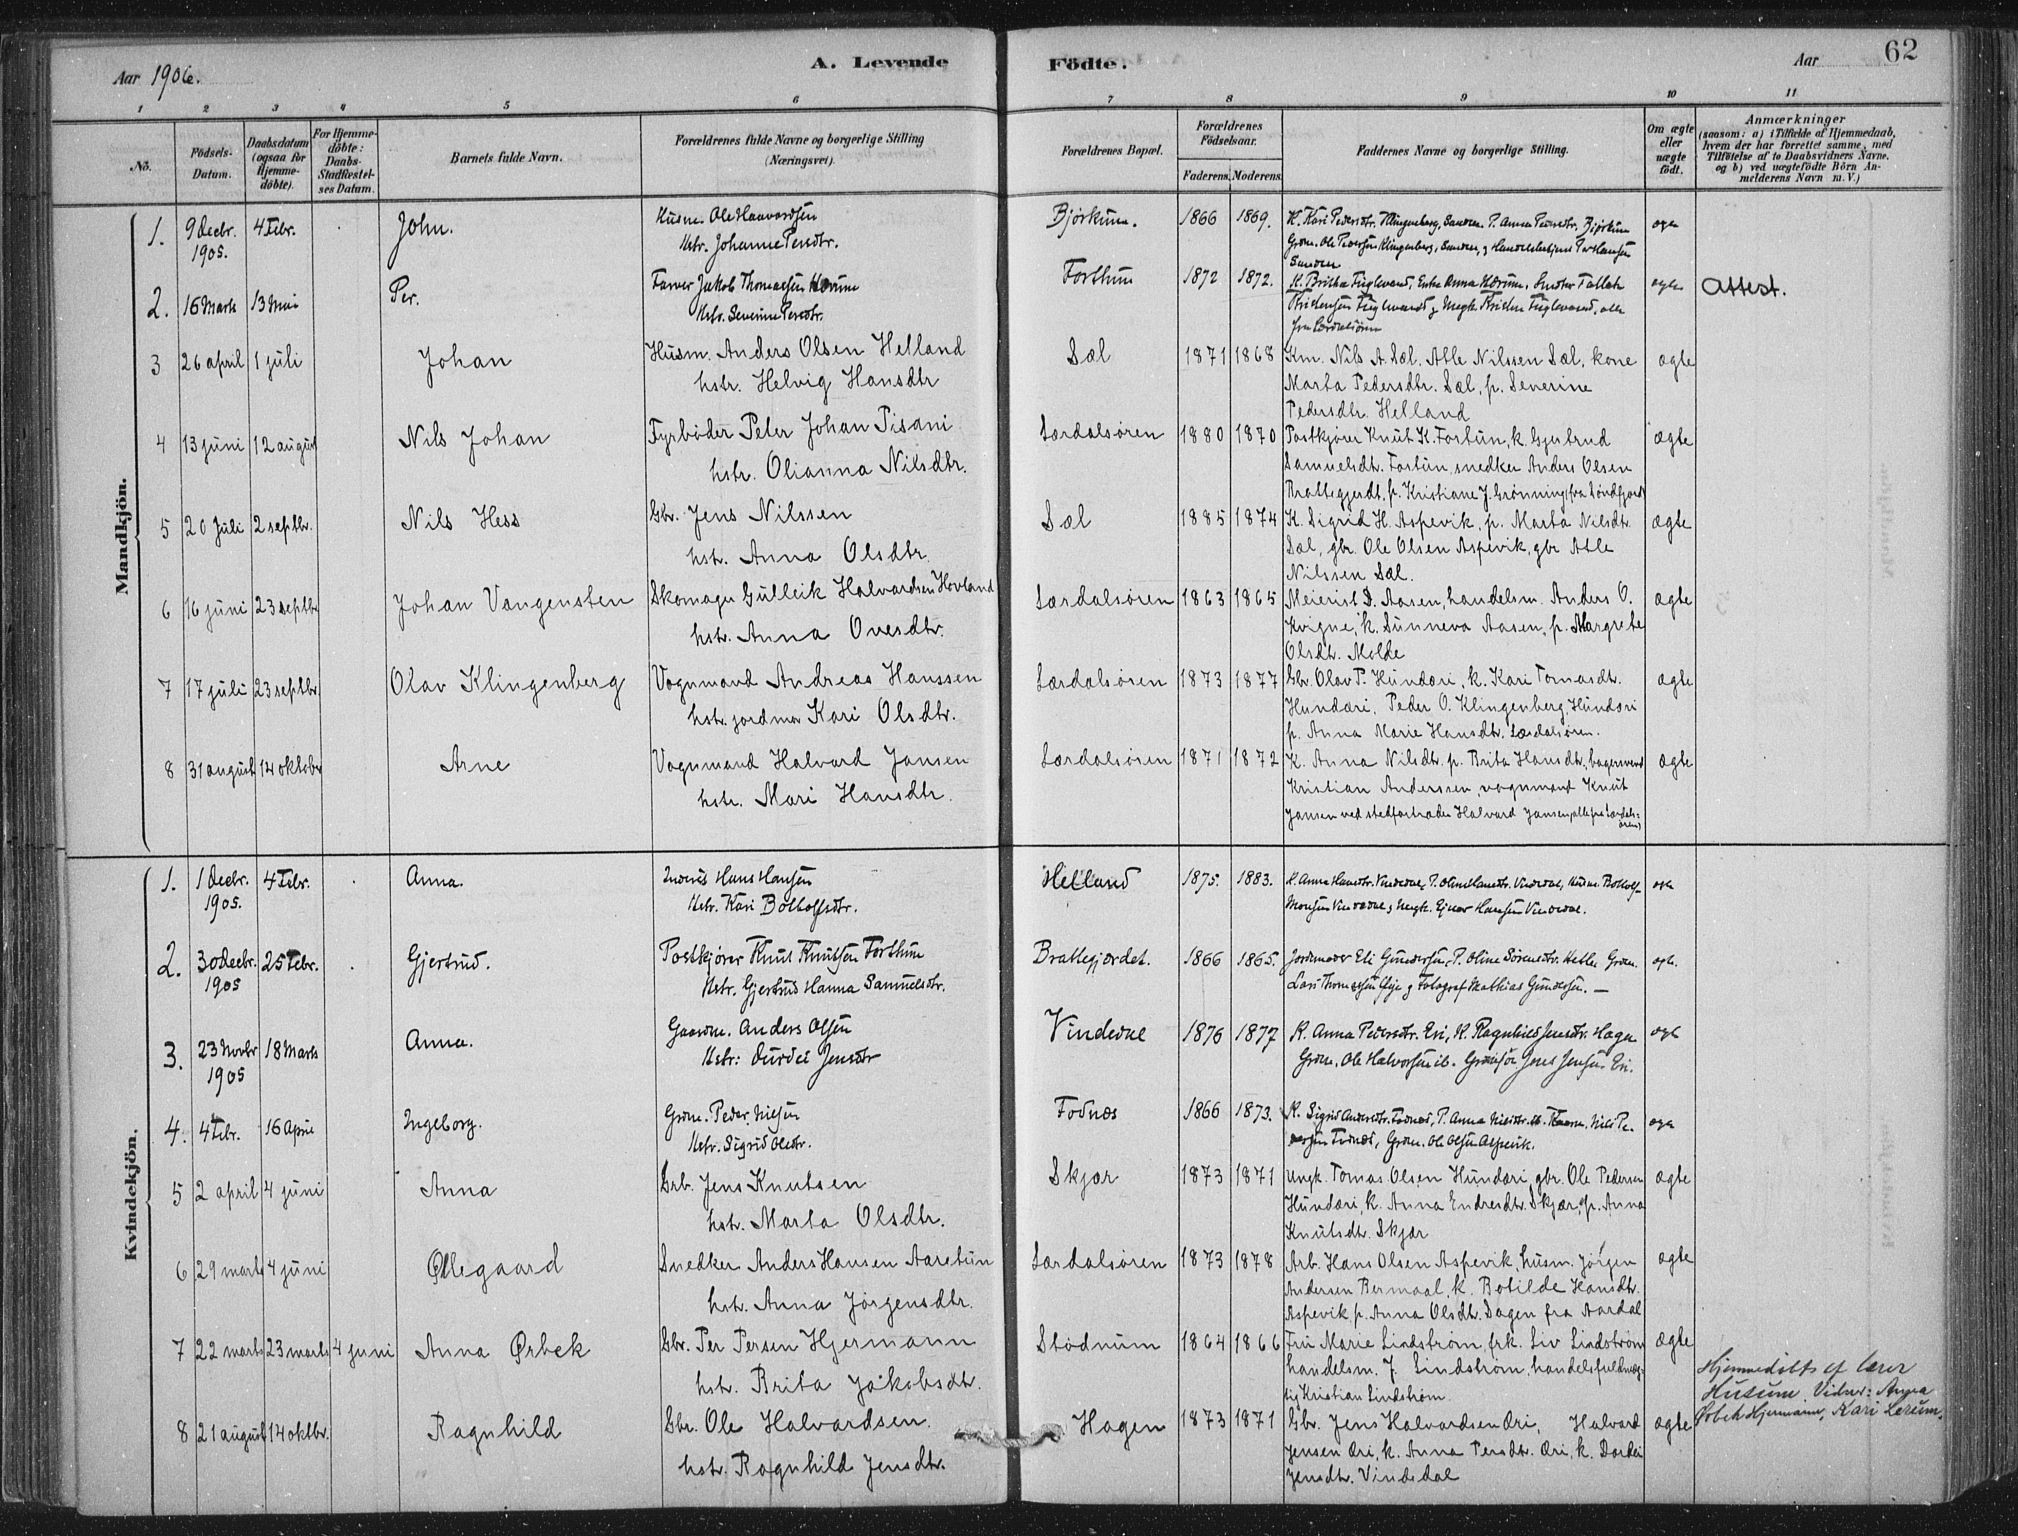 Aar 1906.
A. Levende
Födte.
Aar
62
1 2 3 4 5 6 7 8 9 10 11
No.
Födsels-Datum.
Daabsdatum (ogsaa for Hjemmedöbte).
For Hjemmedöbte: Daabs-Stadfæstelses Datum.
Barnets fulde Navn.
Forældrenes fulde Navne og borgerlige Stilling (Næringsvei).
Forældrenes Bopæl.
Forældrenes Födselsaar.
Faderens. Moderens.
Faddernes Navne og borgerlige Stilling.
Om ægte eller uægte födt.
Anmærkninger
(saasom: a) i Tilfælde af Hjemmedaab, hvem der har forrettet samme, med Tilföielse af to Daabsvidners Navne, og b) ved uægtefödte Börn Anmelderens Navn m. V.)
Mandkjön.
1. 9 Decbr. 1905. 4 Febr. John. Husm. Ole Haavardsen Hstr. Johanne Persdtr. Bjørkum. 1866 1869. K. Kari Pedersdtr. Klingenberg, Sanden. P. Anna Pedersdtr. Bjørkum
Grdm. Ole Pedersen Klingenberg, Sanden, Per Hansen
Sanden
2. 16 Marts 13 Mai Per. Farver Jakob Thomassen Hærum Hstr. Severine Persdtr. Forthun 1872 1872. K. Britha Fuglevand, Enke Anna Hærum,
Kristensen Fuglevand, Ungk. Kristen Fuglevand, alle
fra Lærdalsøren Attest.
3 26 april 1 juli Johan Husm. Anders Olsen Helland hstr. Helvig Hansdtr Sæl 1871 1868 Km. Nils A. Sæl, Atle Nilssen Sæl, kone
Marta Pedersdtr. Sæl, p. Severine
Pedersdtr. Helland ægte
4 13 juni 12 august Nils Johan Fyrbøder Peter Johan Pisani hstr. Olianna Nilsdtr. Lærdalsören 1880 1870 Postkjører Knut K. Fortun, k. Gjertrud
Samuelsdtr. Fortun, snedker Anders Olsen
Brattegjerdt, p. Kristiane J. Grønning fra Søndfjord ægte
5 20 Juli 2 septbr. Nils Hess Gbr. Jens Nilssen hstr. Anna Olsdtr. Sæl 1885 1874 K. Sigrid H. Aspevik, p. Marta Nilsdtr.
Sæl, gbr. Ole Olsen Aspevik, gbr. Atle
Nilssen Sæl. ægte
6 16 juni 23 septbr Johan Vangensten Skomager Gulleik Halvardsen Hovland hstr. Anna Ovesdtr. Lærdalsören 1863 1865 Meierist D. Aasen, handelsm. Anders O.
Kvigne, k. Sunneva Aasen, p. Margrete
Olsdtr. Molde ægte
7 17 juli 23 septbr. Olav Klingenberg Vognmand Andreas Hanssen hstr. jordmor Kari Olsdtr. Lærdalsøren 1873 1877 Gbr. Olav P. Hundæri, k. Kari Tomasdtr.
Hundæri, Peder O. Klingenberg Hundæri
p. Anna Marie Hansdtr. Lærdalsören. ægte
8 31 august 14 oktober Arne Vognmand Halvard Jansen hstr. Mari Hansdtr. Lærdalsøren 1871 1872 K. Anna Nilsdtr. p. Brita Hansdtr, bagersvend
Kristian Anderssen, vognmand Knut
Jansen ved stedfortræder Halvard Jansen, alle fra Lærdalsøren ægte
Kvindekjön.
1. 1 Decbr. 1905. 4 Febr. Anna. Hans Hansen Hstr. Kari Botholfsdtr. Helland 1875. 1883. K. Anna Hansdtr. Vindedal, Vindedal, Husm. Botholf
Monsen Vindedal, Ungk. Ejnar Hansen Vindedal.
2. 30 Decbr. 1905 25 Febr. Gjertrud. Postkjører Knut Knutsen Forthun Hstr. Gjertrud Hanna Samuelsdtr. Brattegjærdet. 1866 1865. Jordemoder Eli Gundersen, P. Oline Sørensdtr. Hetle, Grdm.
Lars Thomassen Fotograf Mathias Gundersen. —
3. 23 Novbr 1905 18 Marts Anna. Gaardm. Anders Olsen Hstr: Durdei Jensdtr Vindedal 1876 1877 K. Anna Pedersdtr. Eri, K. Ragnhild Jensdtr. Hagen
Grdm. Ole Halvorsen ib. Jens Jensen Eri.
4. 4 Febr. 16 April Ingeborg. Grdm. Peder Nilsen Hstr. Sigrid Olsdtr. Fodnæs 1866 1873. K. Sigrid Andersdtr. Fodnæs, P. Anna Nilsdtr. ib. Nils Pedersen
Fodnæs, Grdm. Ole Olsen Aspevik.
5 2 april 4 juni Anna Grb. Jens Knutsen hstr. Marta Olsdtr. Skjær 1873 1871 Ungk. Tomas Olsen Hundæri, gbr. Ole Pedersen
Hundæri, k. Anna Endresdtr. Skjær, p. Anna
Knutsdtr. Skjær ægte
6 29 marts 4 juni Øllegaard Snedker Anders Hansen Aaretun hstr. Anna Jørgensdtr. Lærdalsören 1873 1878 Arb. Hans Olsen Aspevik, husm. Jørgen
Andersen Bermaal, k. Botilde Hansdtr.
Aspevik p. Anna Olsdtr. Dagen fra Aardal ægte
7 22 marts 23 marts 4 juni Anna Ørbek Gbr. Per Persen Hjermann hstr. Brita Jakobsdtr. Stødnum 1864 1866 Fru Marie Lindstrøm, frk. Liv Lindstrøm
handelsm. J. Lindstrøm, handelsfuldmægtig
Kristian Lindstrøm ægte
Hjemmedøbt af lærer
Husum. Vidner: Anna
Ørbek Hjermann, Kari Lerum.
8 21 august 14 oktbr. Ragnhild Gbr. Ole Halvardsen. hstr. Ragnhild Jensdtr. Hagen 1873 1871 Gbr. Jens Halvardsen Æri, Halvard
Jensen Æri, k. Anna Persdtr. Æri, k. Dordei
Jensdtr. Vindedal ægte